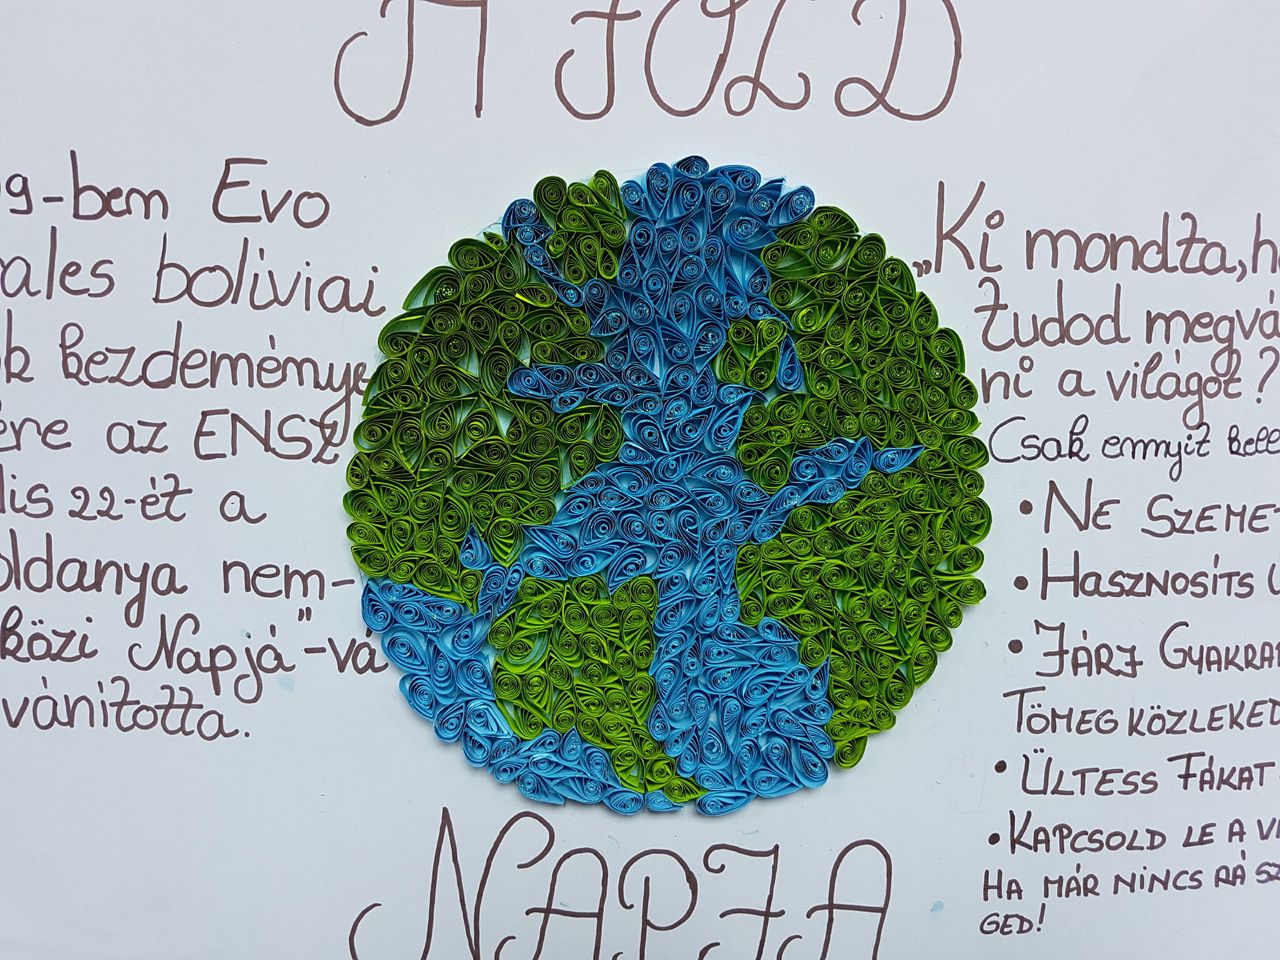 A FÖLD
9-bem Evo
ales boliviai
kezdeménye
ére az ENSZ
lis 22-ét a
oldanya nem-
közi Napjá"-vá
vánította.
„Ki mondta, h
tudod megvá
ni a világot?
Csak ennyit kell
• NE SZEMET
• HASZNOSÍTS Ú
• JÁRJ GYAKRA
TÖMEGKÖZLEKED
• ÜLTESS FÁKAT
• KAPCSOLD LE A VI
HA MÁR NINCS RÁ SZ
GED!
NAPJA